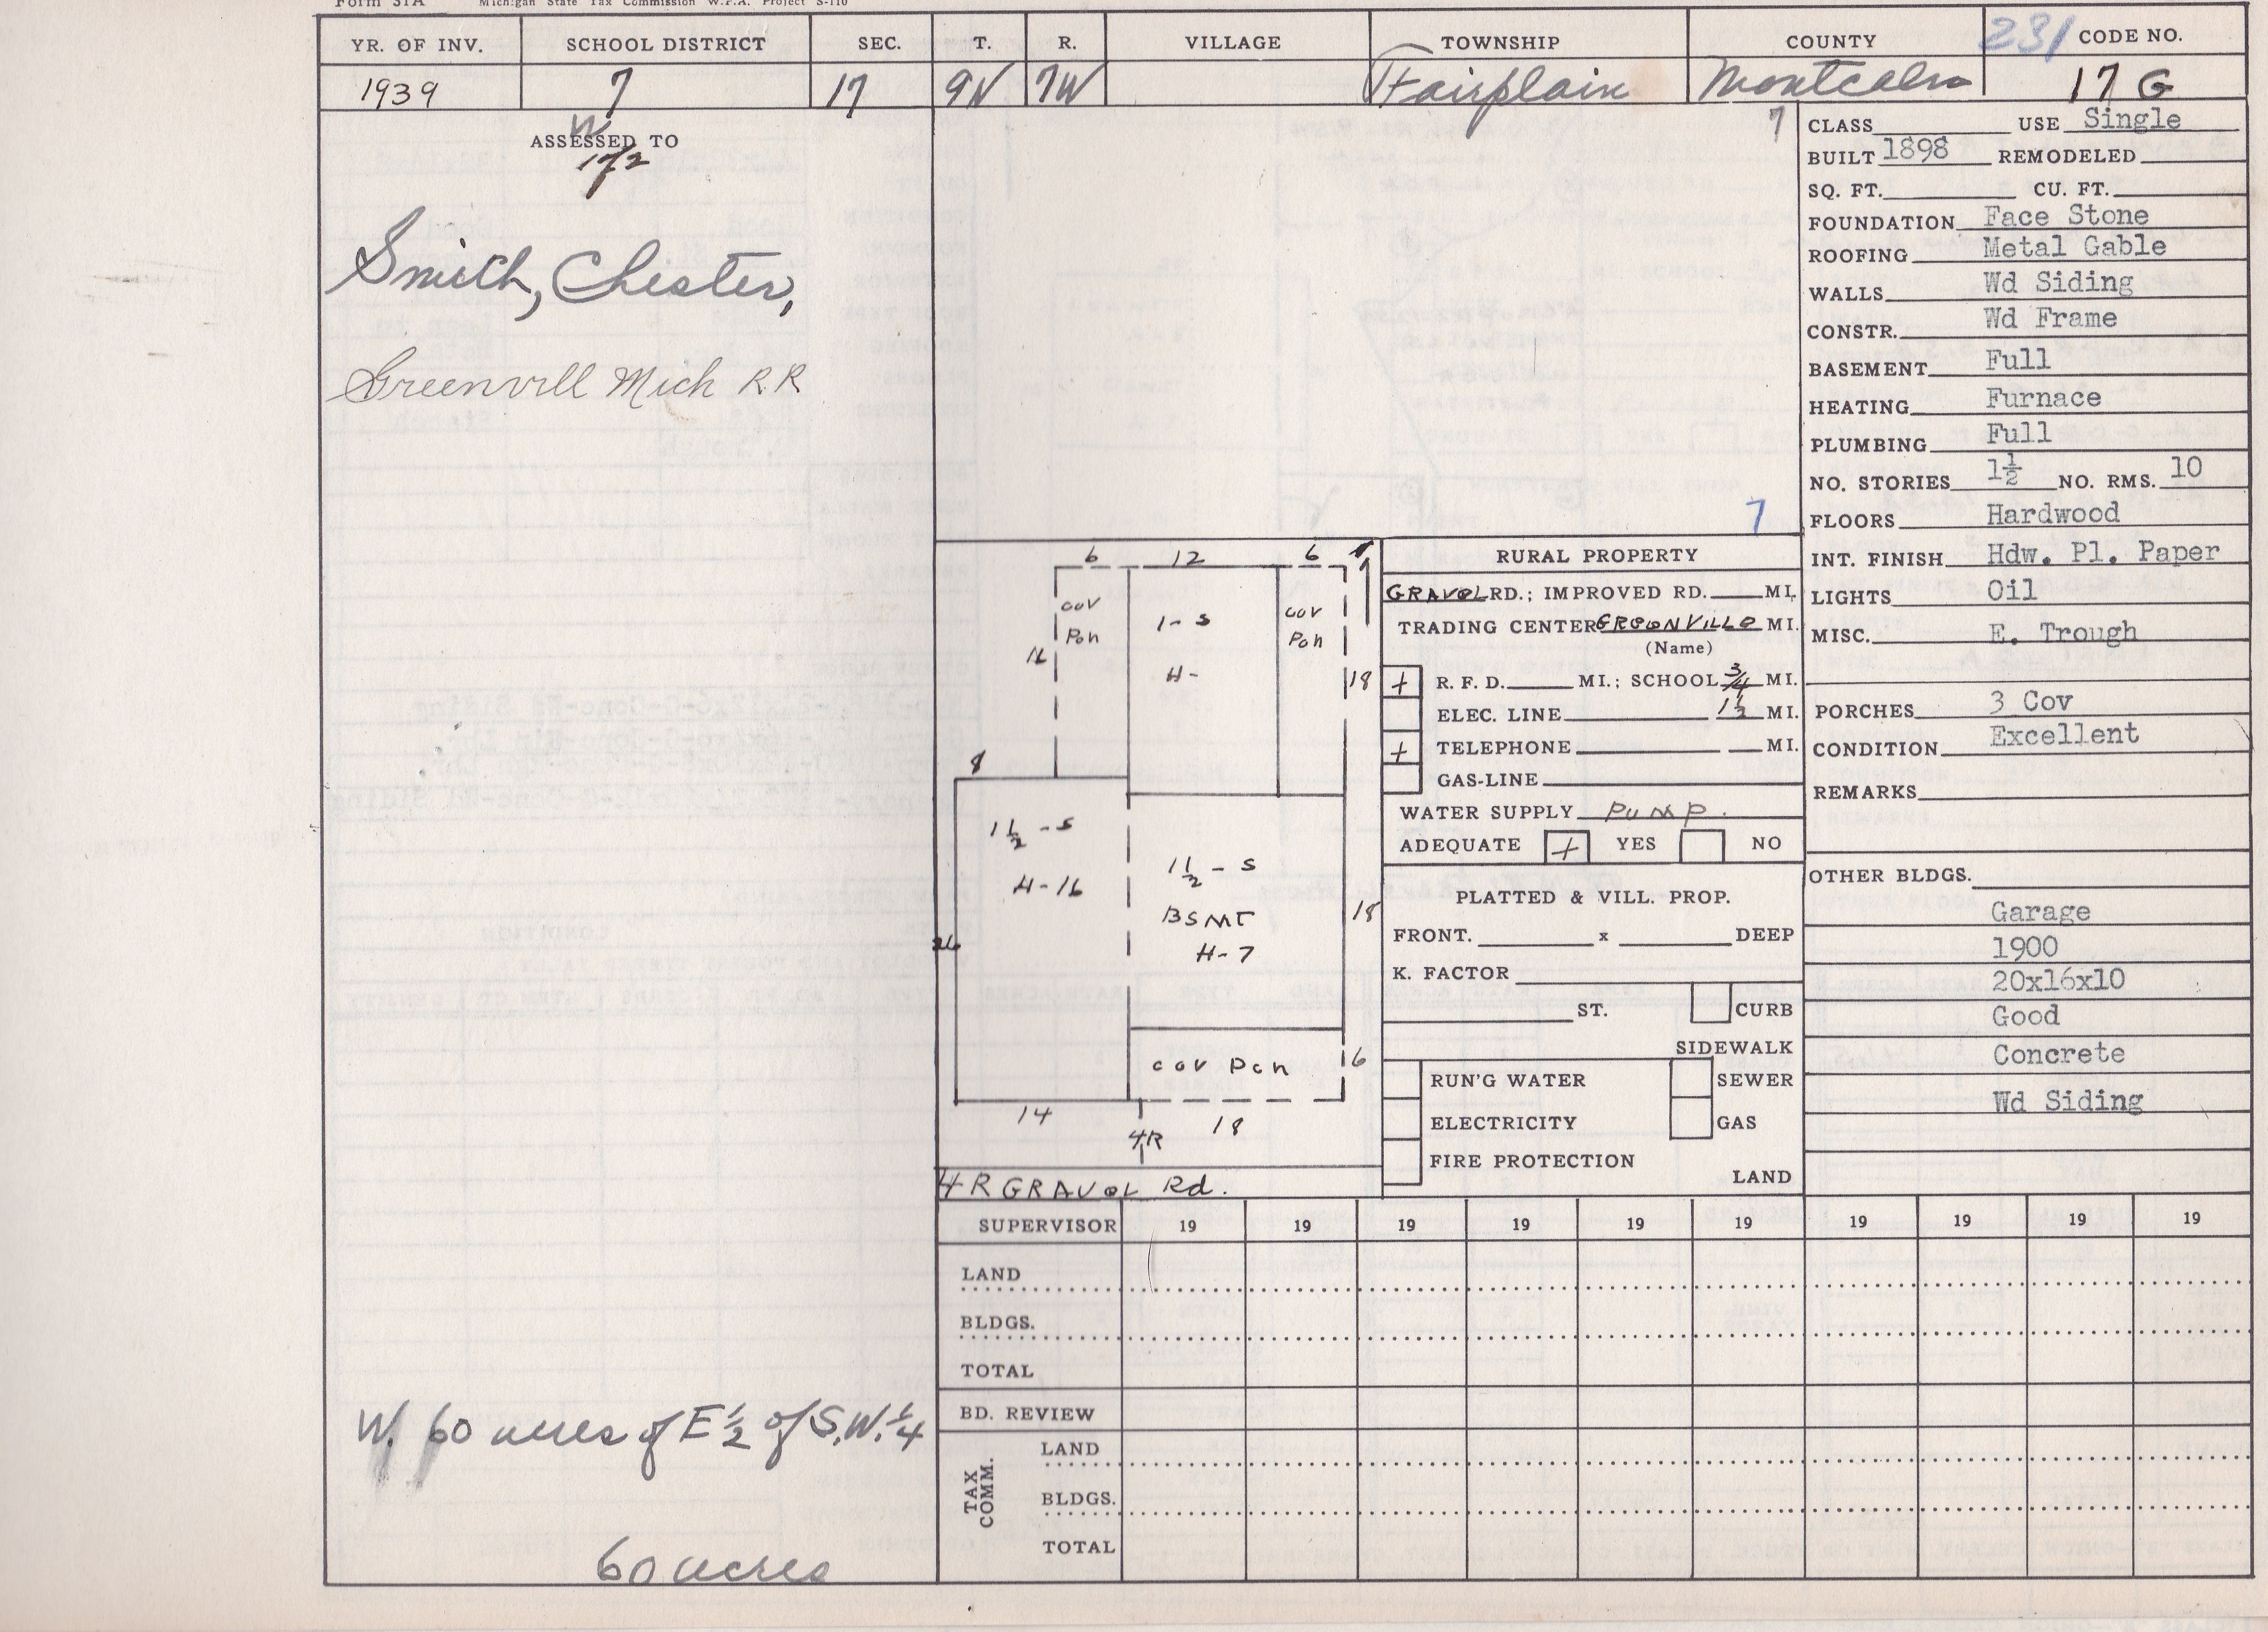 Form 31A Michigan State Tax Commission W.P.A. Project S-110
YR. OF INV. SCHOOL DISTRICT SEC. T. R. VILLAGE TOWNSHIP COUNTY 231 CODE NO.
1939 7 17 9N 7W Fairplain Montcalm 17 G
ASSESSED TO
W
Smith, Chester,
Greenvill Mich RR
W. 60 acres of E 1/2 of S.W. 1/4
60 acres
7
7
CLASS USE Single
BUILT 1898 REMODELED
SQ. FT. CU. FT.
FOUNDATION Face Stone
ROOFING Metal Gable
WALLS Wd Siding
CONSTR. Wd Frame
BASEMENT Full
HEATING Furnace
PLUMBING Full
NO. STORIES 1½ NO. RMS. 10
FLOORS Hardwood
INT. FINISH Hdw. Pl. Paper
LIGHTS Oil
MISC. E. Trough
PORCHES 3 Cov
CONDITION Excellent
REMARKS
OTHER BLDGS.
Garage
1900
20x16x10
Good
Concrete
Wd Siding
6 12 6
cov Pch
1-S
H-
cov Pch
16
18
8
1½-S
H-16
1½-S
BSMT
H-7
18
cov Pch
16
14
4R
18
4R GRAVEL Rd.
RURAL PROPERTY
GRAVEL RD.; IMPROVED RD. MI.
TRADING CENTER GREENVILLE MI.
(Name)
+ R. F. D. MI.; SCHOOL 3/4 MI.
ELEC. LINE 1½ MI.
+ TELEPHONE MI.
GAS-LINE
WATER SUPPLY PUMP.
ADEQUATE + YES NO
PLATTED & VILL. PROP.
FRONT. x DEEP
K. FACTOR
ST. CURB
SIDEWALK
RUN'G WATER SEWER
ELECTRICITY GAS
FIRE PROTECTION
LAND
SUPERVISOR 19 19 19 19 19 19 19 19 19 19
LAND
BLDGS.
TOTAL
BD. REVIEW
TAX COMM.
LAND
BLDGS.
TOTAL